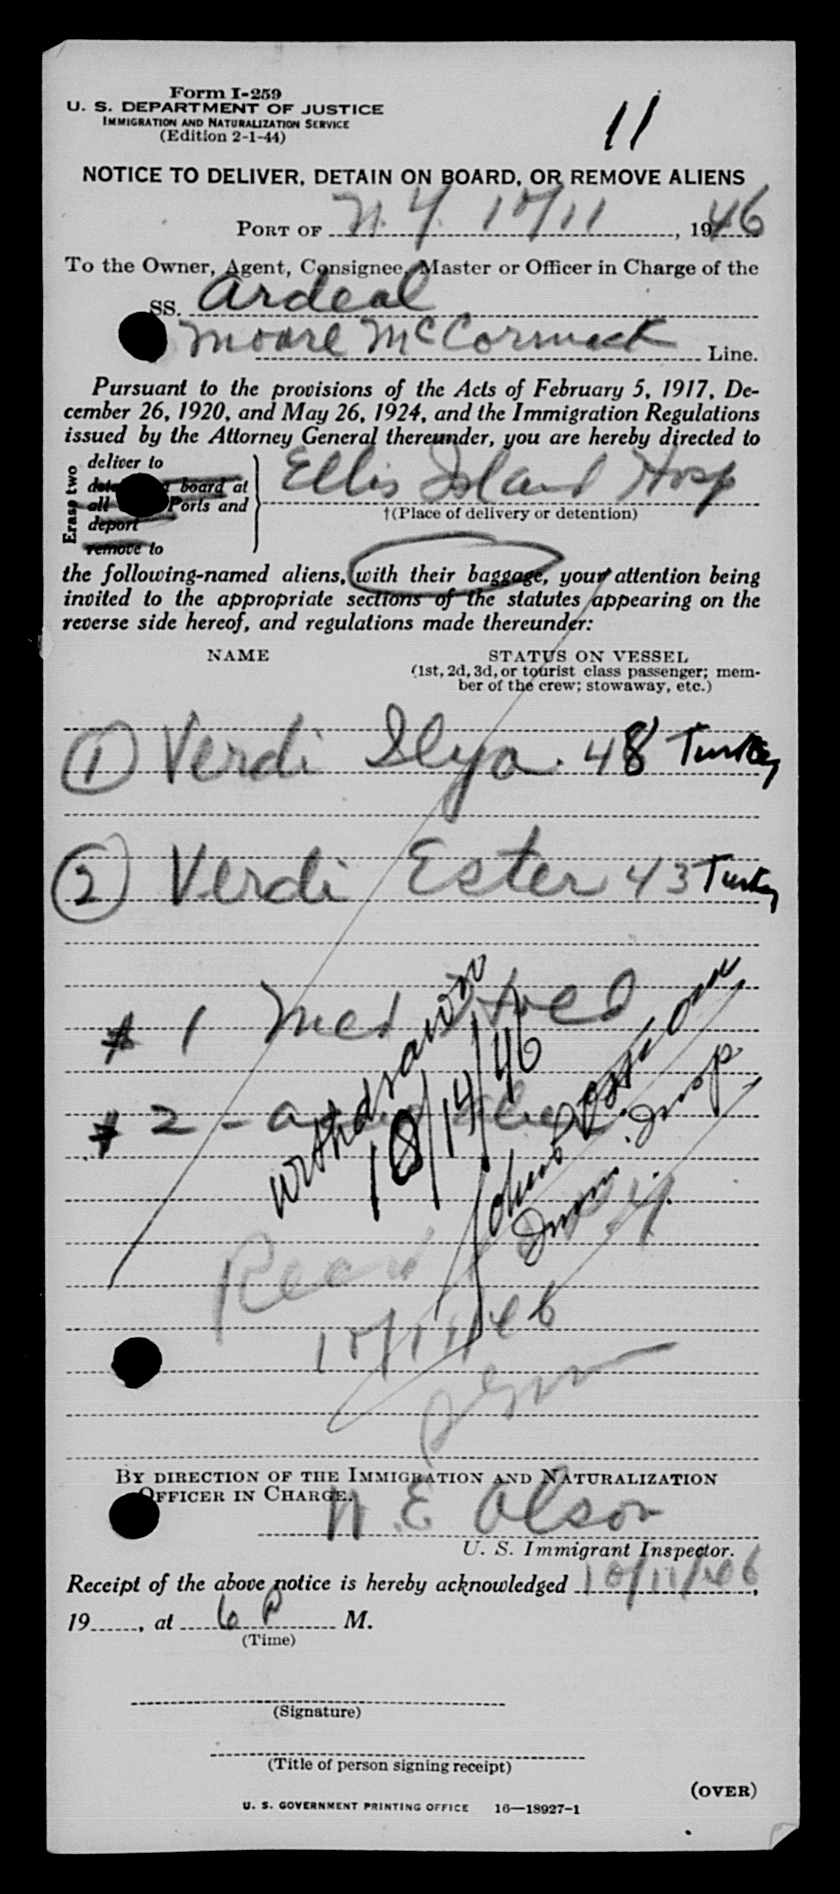 Form I-259
U. S. DEPARTMENT OF JUSTICE
IMMIGRATION AND NATURALIZATION SERVICE
(Edition 2-1-44)
11
NOTICE TO DELIVER, DETAIN ON BOARD, OR REMOVE ALIENS
PORT OF N.Y. 10/11, 1946
To the Owner, Agent, Consignee, Master or Officer in Charge of the
SS. Ardeal
Moore McCormack Line.
Pursuant to the provisions of the Acts of February 5, 1917, De-
cember 26, 1920, and May 26, 1924, and the Immigration Regulations
issued by the Attorney General thereunder, you are hereby directed to
Erase two
deliver to
board at
all Ports and
deport
remove to
Ellis Island Hosp
†(Place of delivery or detention)
the following-named aliens, with their baggage, your attention being
invited to the appropriate sections of the statutes appearing on the
reverse side hereof, and regulations made thereunder:
NAME STATUS ON VESSEL
(1st, 2d, 3d, or tourist class passenger; mem-
ber of the crew; stowaway, etc.)
1 Verdi Ilya. 48 Turkey
2 Verdi Ester 43 Turkey
# 1 Med
# 2 -
withdrawn
10/14/46
Imm. Insp.
Recd
10/11/46
BY DIRECTION OF THE IMMIGRATION AND NATURALIZATION
OFFICER IN CHARGE.
W. E. Olson
U. S. Immigrant Inspector.
Receipt of the above notice is hereby acknowledged 10/11/46,
19......, at 6 P M.
(Time)
(Signature)
(Title of person signing receipt)
(OVER)
U. S. GOVERNMENT PRINTING OFFICE 16—18927-1